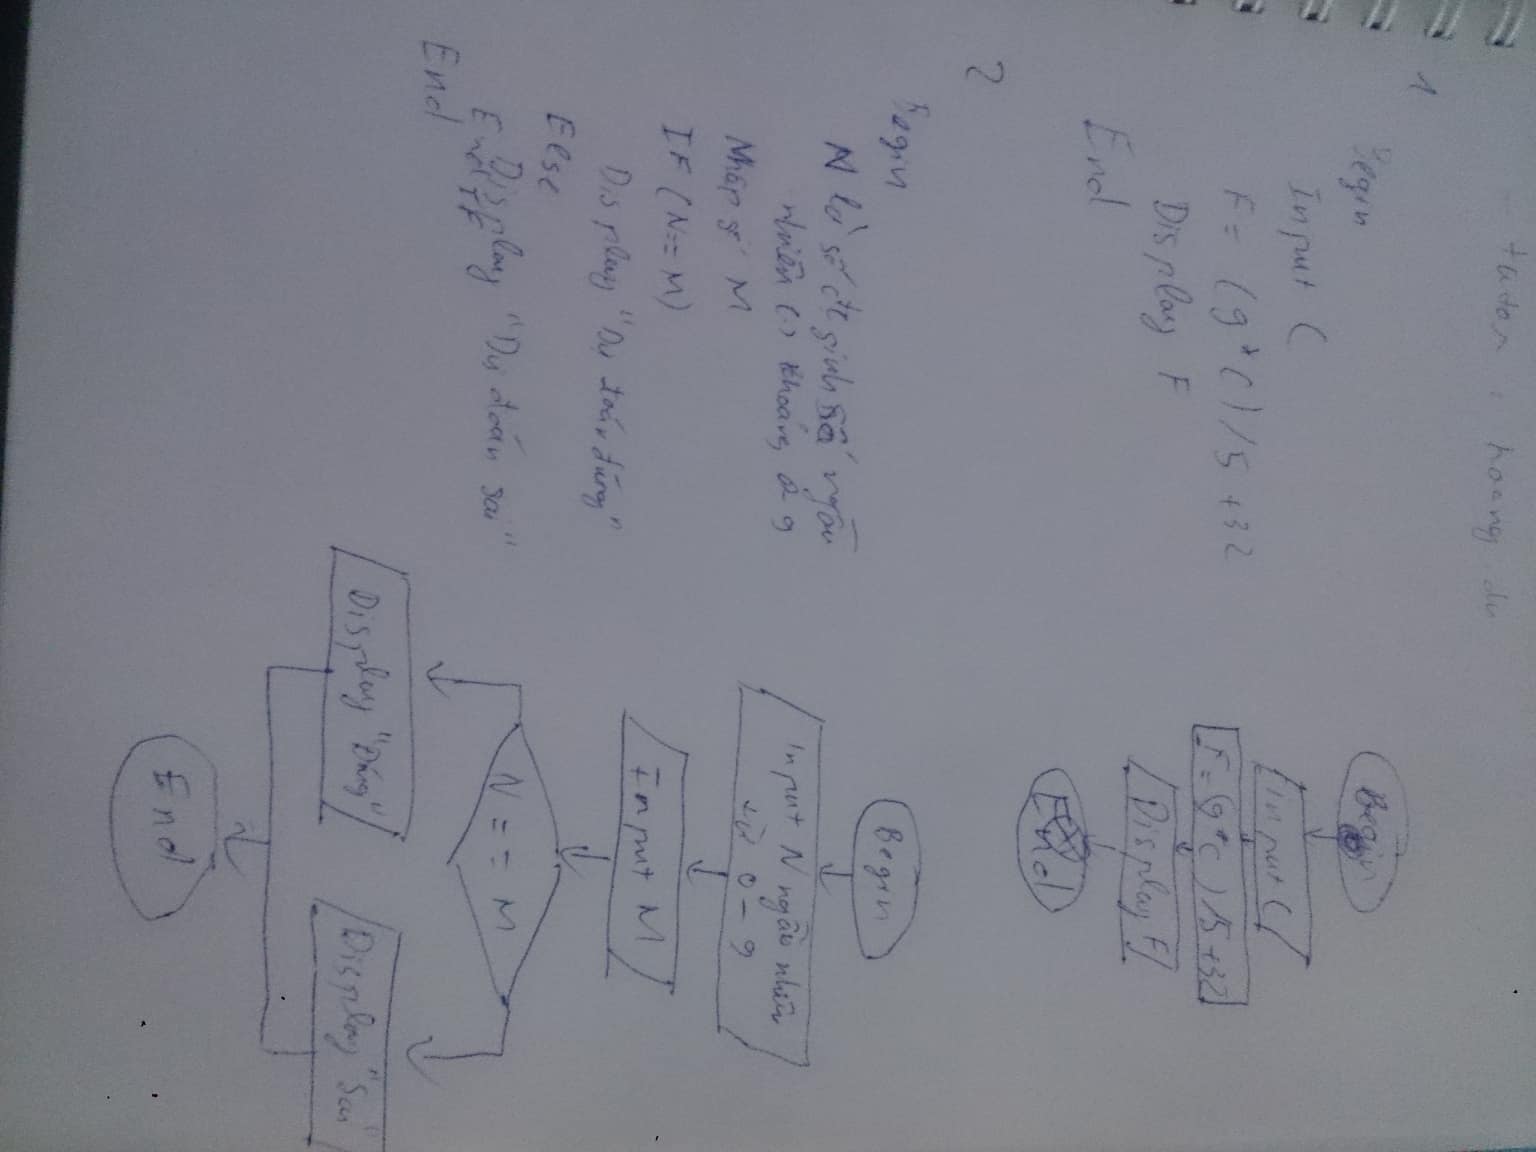 tutor : hoang du
1
Begin
Input C
F = (9*C)/5 + 32
Display F
End
Begin
Input C
F = (9*C)/5+32
Display F
End
2
Begin
N là số được sinh số ngẫu
nhiên có khoảng 0 9
Nhập số M
IF (N == M)
Display "Dự toán đúng"
Else
Display "Dự đoán sai"
End IF
End
Begin
Input N ngẫu nhiên
từ 0 - 9
Input M
N == M
Display "Đúng"
Display "Sai"
End